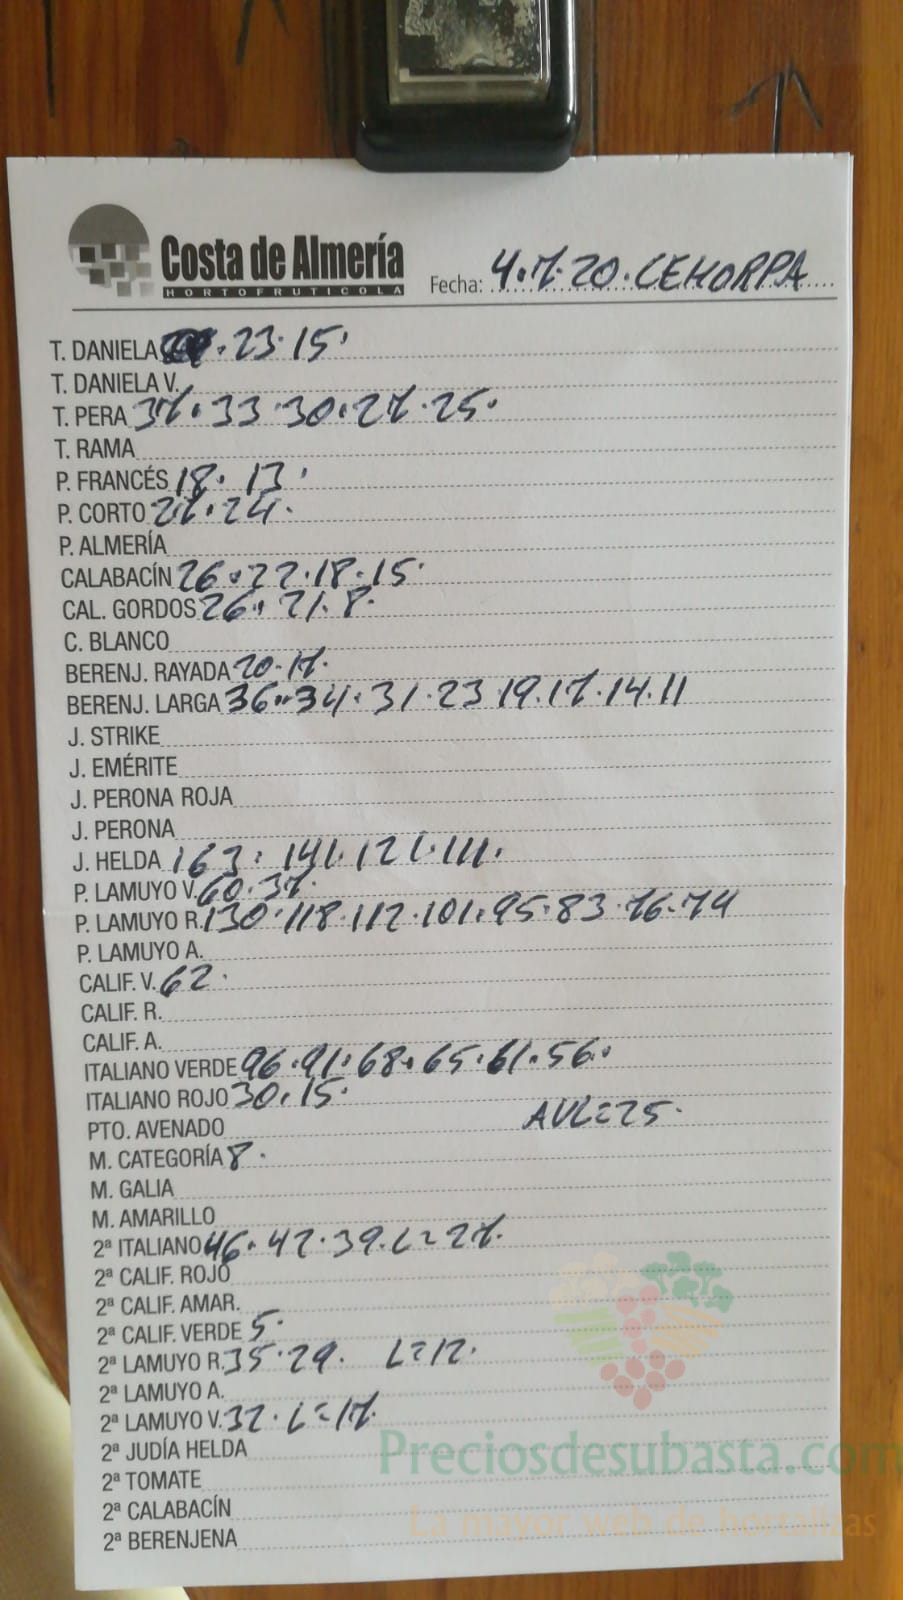 Costa de Almería
HORTOFRUTICOLA
Fecha: 4.7.20. CEHORPA
T. DANIELA 23. 15.
T. DANIELA V.
T. PERA 37. 33. 30. 27. 25.
T. RAMA
P. FRANCÉS 18. 13.
P. CORTO 27. 24.
P. ALMERÍA
CALABACÍN 26. 22. 18. 15.
CAL. GORDOS 26. 21. 8.
C. BLANCO
BERENJ. RAYADA 20. 17.
BERENJ. LARGA 36. 34. 31. 23 19. 17. 14. 11
J. STRIKE
J. EMÉRITE
J. PERONA ROJA
J. PERONA
J. HELDA 163. 141. 121. 111.
P. LAMUYO V. 60. 37.
P. LAMUYO R. 130. 118. 112. 101. 95. 83. 76. 74
P. LAMUYO A.
CALIF. V. 62.
CALIF. R.
CALIF. A.
ITALIANO VERDE 96. 91. 68. 65. 61. 56.
ITALIANO ROJO 30. 15.
PTO. AVENADO AVL=25.
M. CATEGORÍA 8.
M. GALIA
M. AMARILLO
2ª ITALIANO 46. 42. 39. L=27.
2ª CALIF. ROJO
2ª CALIF. AMAR.
2ª CALIF. VERDE 5.
2ª LAMUYO R. 35. 29. L=12.
2ª LAMUYO A.
2ª LAMUYO V. 32. L=17.
2ª JUDÍA HELDA
2ª TOMATE
2ª CALABACÍN
2ª BERENJENA
Preciosdesubasta.com
La mayor web de hortalizas